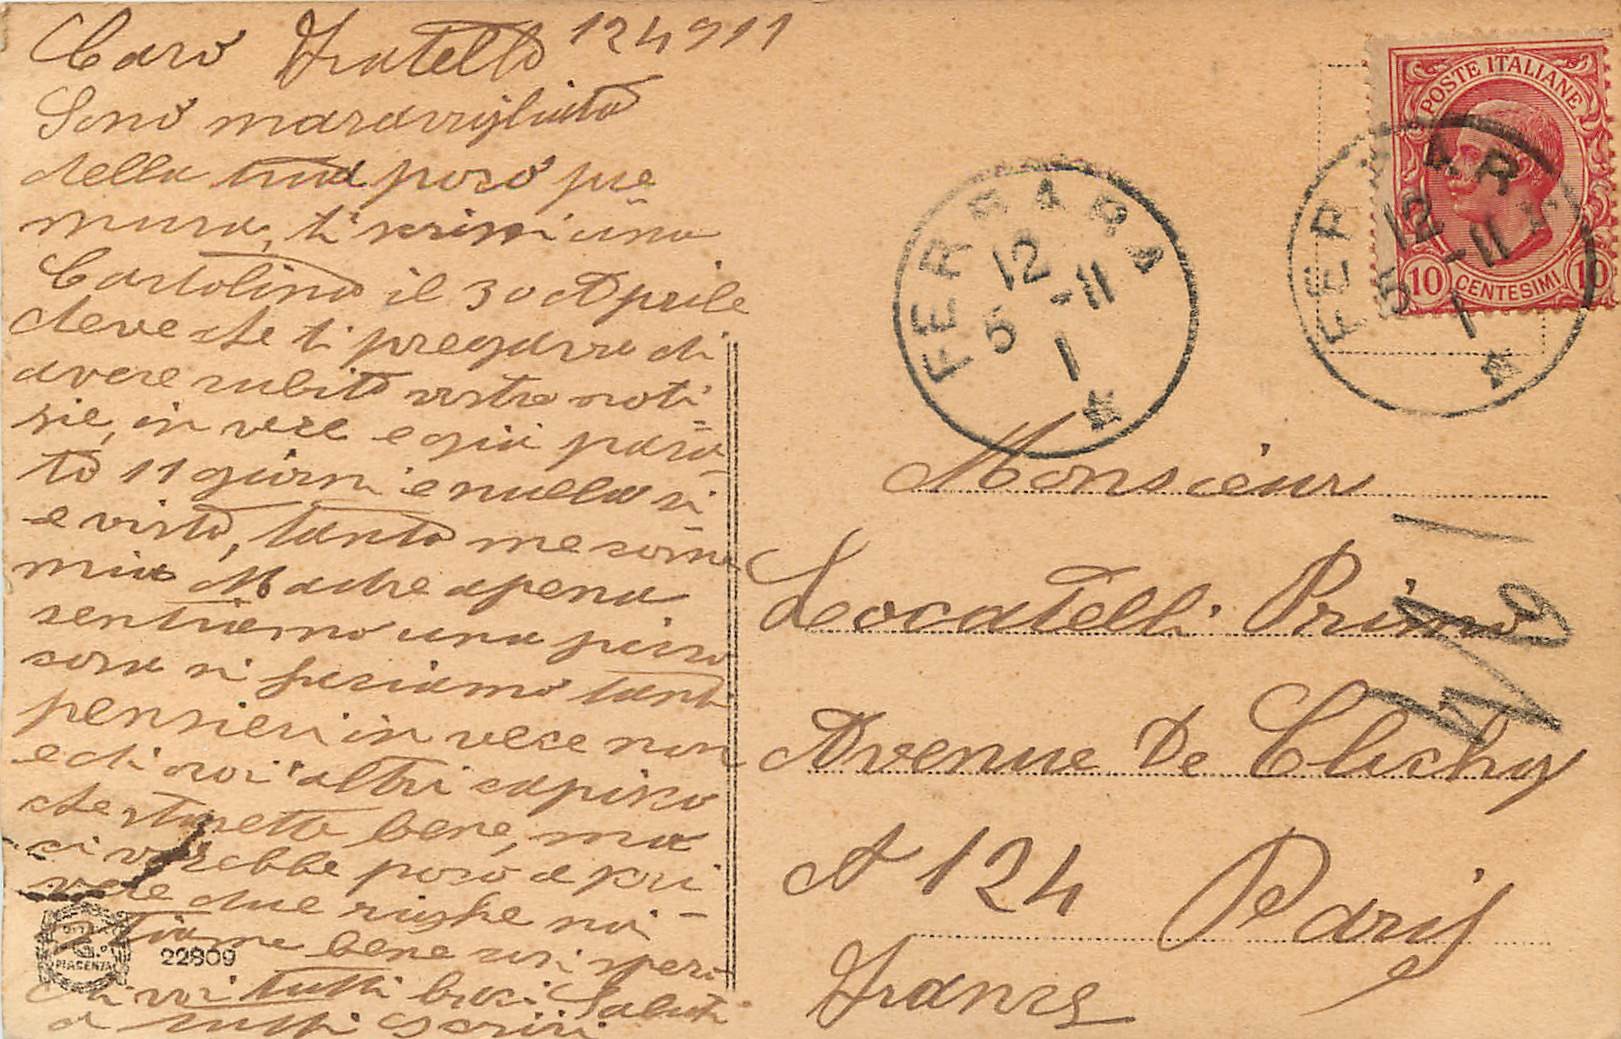 Caro Fratello 12 4 911
Sono maravigliato
della tua poco pre
mura, ti scrissi una
Cartolina il 30 Aprile
deve che ti pregavo di
avere subito vostre noti
sie, in vece e già passa
to 11 giorni e nulla si
e visto, tanto me come
mia Madre apena
sentiamo una picco
cosa si faciamo tanti
pensieri in vece non
e di voi altri capisco
che starette bene, ma
ci vorebbe poco a scri
vere due righe noi
stiamo bene così spero
di voi tutti baci Saluti
a tutti scrivi
22809
PIACENZA
POSTE ITALIANE
10 CENTESIMI 10
FERRARA
12
5 -11
1
FERRARA
12
5 -11
1
Monsieur
Locatelli Primo
Avenue De Clichy
N 124 Paris
France